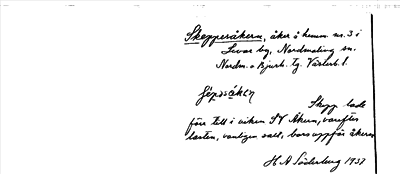 Skeppersåkern, åker å hemm. nr. 3 i
Levar by, Nordmaling sn.
Nordm. o Bjurh. tg. Västerb. l.
Skepp lade
förr till i viken SV Åkern, varefter
lasten, vanligen salt, bars uppför åkern
H A Söderberg 1937